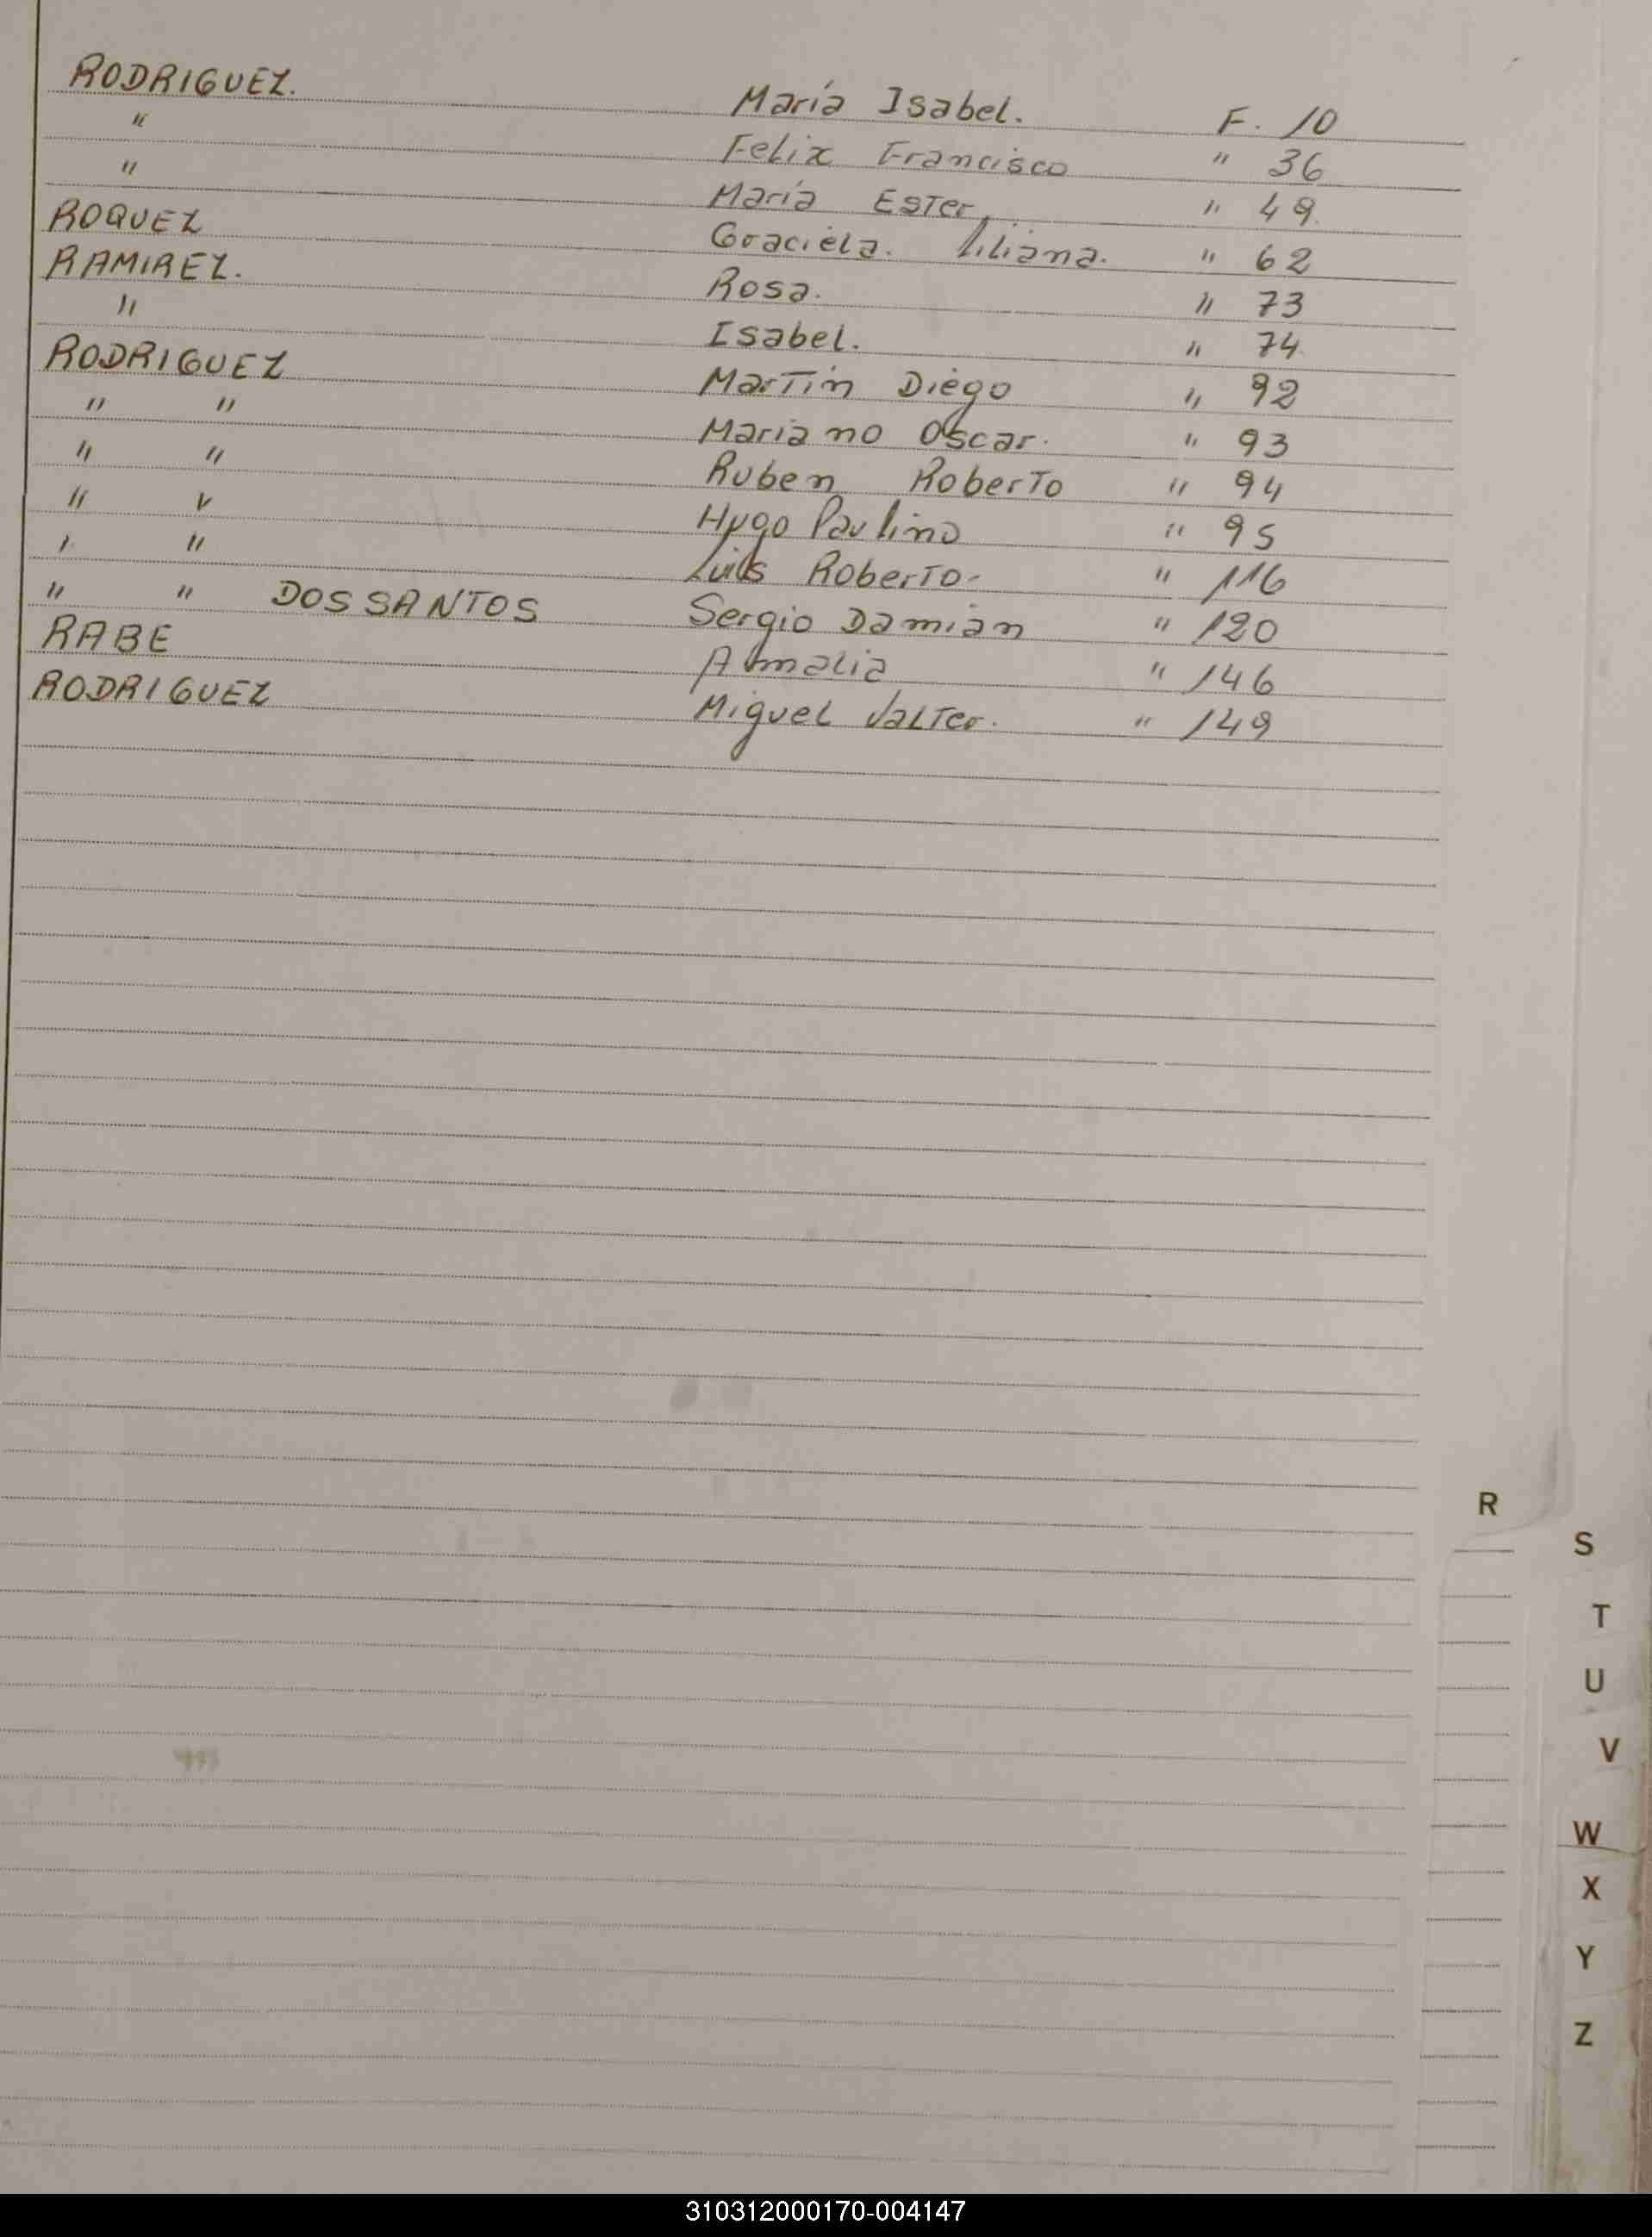 RODRIGUEZ. María Isabel. F. 10
" Felix Francisco " 36
" María Ester. " 49.
ROQUEZ Graciela. Liliana. " 62
RAMIREZ. Rosa. " 73
" Isabel. " 74
RODRIGUEZ Martín Diego " 92
" " Mariano Oscar. " 93
" " Ruben Roberto " 94
" " Hugo Paulino " 95
" " Luis Roberto. " 116
" " DOS SANTOS Sergio Damián " 120
RABE Amalia " 146
RODRIGUEZ Miguel Valter. " 149
R
S
T
U
V
W
X
Y
Z
310312000170-004147